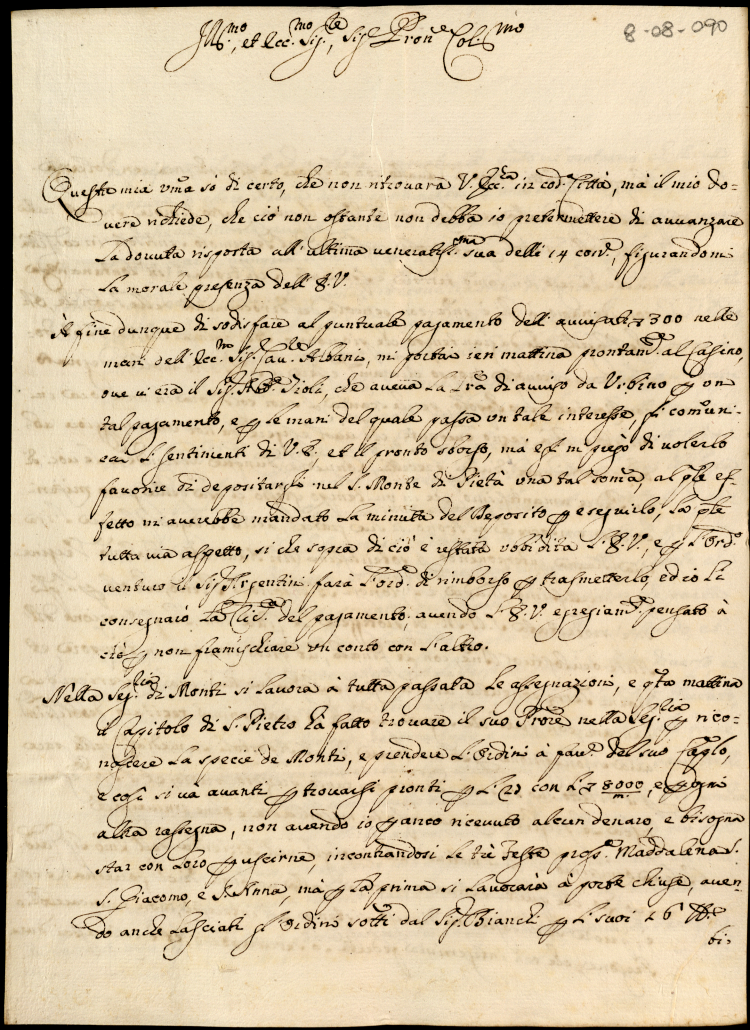 8-08-090
Ill.mo, et Ecc.mo Sig.re, Sig.r Pron.e Col.mo
Questa mia v̄ma sò di certo, che non ritrovarà V. Ecc.za in cod.a Città, mà il mio do=
vere richiede, che ciò non ostante non debba io pretermettere di avvanzare
La dovuta risposta all'ultima veneratis.ma sua delli 14 corr.e, figurandomi
La morale presenza dell'E.V.
À fine dunque di sodisfare al puntuale pagamento dell' avvisati 300 nelle
mani dell'Ecc.mo Sig. Cav.re Albani, mi portai ieri mattina prontam.te al Casino,
ove vi era il Sig. Ab.e Zioli, che aveva La Lr̄a di avviso da Urbino p un
tal pagamento, e p le mani del quale passa un tale interesse, comuni-
cai L' sentimenti di V.E., et il pronto sborso, mà mi pregò di volerlo
favorire di depositarli nel S. Monte di Pietà una tal som̄a, al q̄le ef-
fetto mi averebbe mandato La minuta del Deposito p eseguirlo, La q̄le
tutta via aspetto, si che sopra di ciò è restata vobidita L'E.V., e p L'Ord.o
venturo il Sig. Argentini farà L'ord.e di rimborso p trasmetterlo, ed io Li
consegnaiò La Ric.ta del pagamento, avendo L'E.V. egregiam.te pensato à
ciò p non framischiare un conto con L'altro.
Nella Seg.ria di Monti si Lavora à tutta passata Le assegnazioni, e q̄ta mattina
il Capitolo di S. Pietro hà fatto trovare il suo Pror̄e nella Seg.ria p rico-
noscere La specie de Monti, e prendere L'Ordini à fav.e del suo Cap̄lo,
e così si và avanti p trovarsi pronti p L' 23 con L' 8000, e p ogni
altra rassegna, non avendo io p anco ricevuto alcun denaro, e bisogna
star con Loro p uscirne, incontrandosi Le trè feste pross.e Maddalena S.
S. Giacomo, e S. Anna, mà p La prima si Lavorarà à porte chiuse, aven-
do anche Lasciati gl'Ordini sotti dal Sig. Bianchi p L' suoi 26
bi-